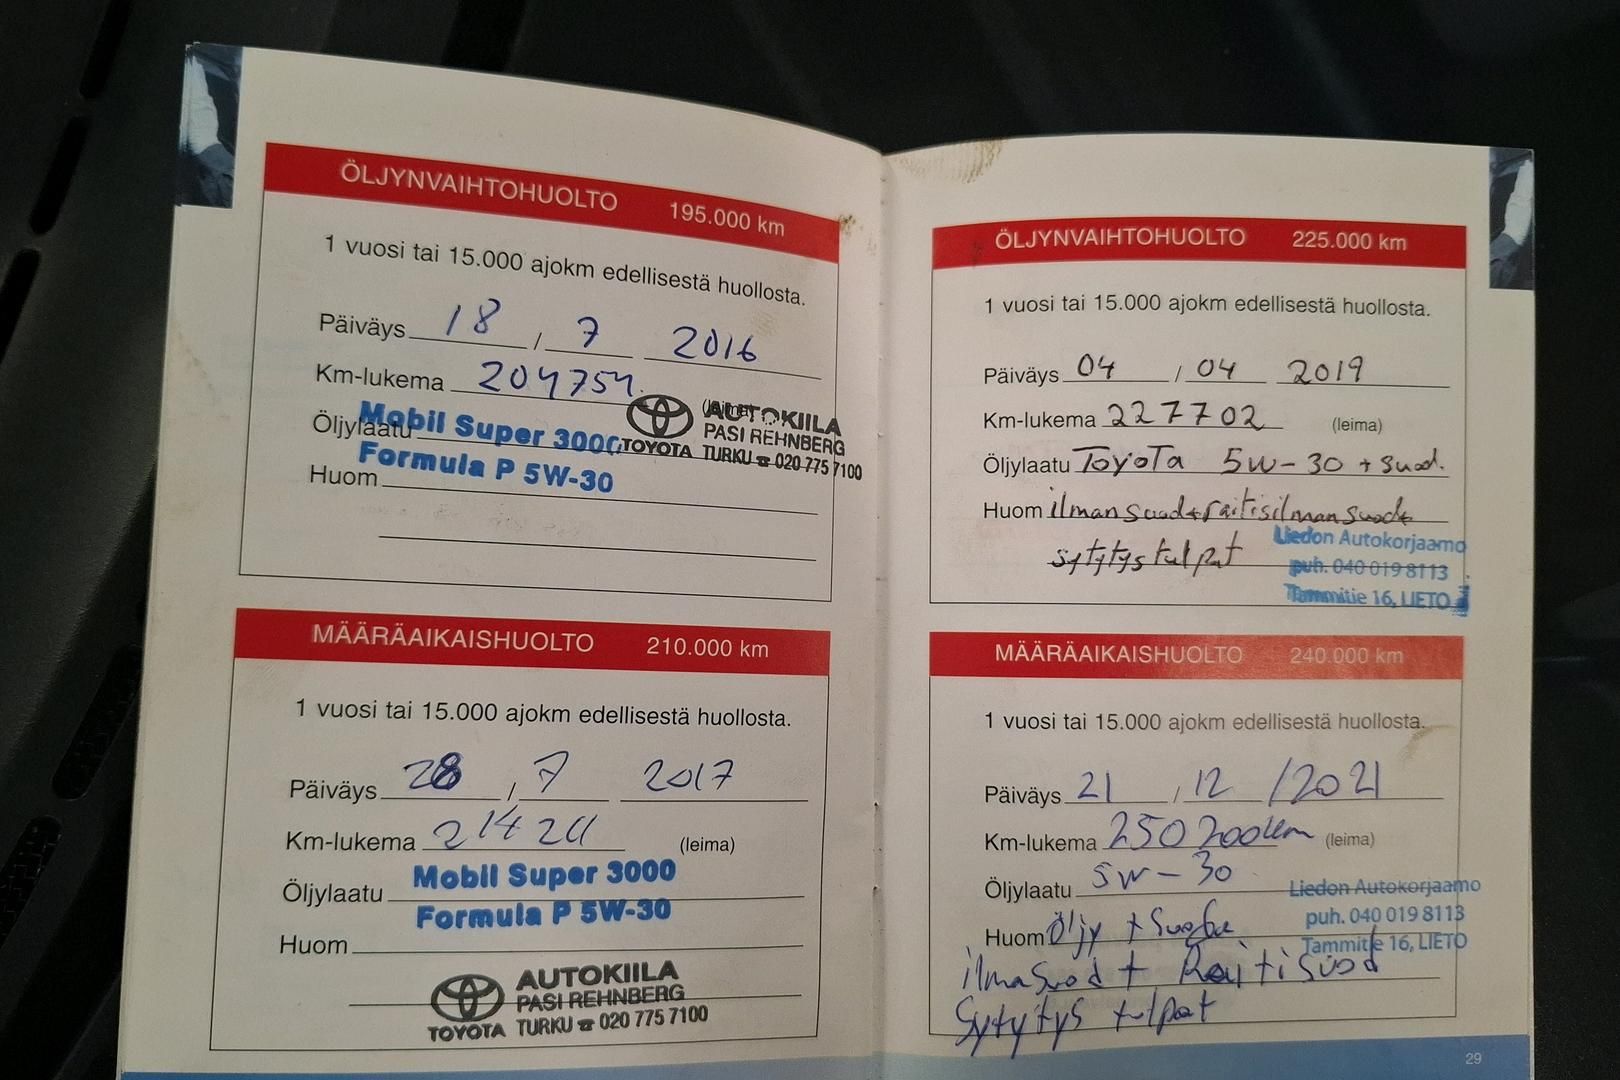 ÖLJYNVAIHTOHUOLTO 195.000 km
1 vuosi tai 15.000 ajokm edellisestä huollosta.
Päiväys 18 / 7 2016
Km-lukema 204754
(leima)
Öljylaatu Mobil Super 3000
Formula P 5W-30
AUTOKIILA
PASI REHNBERG
TOYOTA TURKU ☎ 020 775 7100
Huom
MÄÄRÄAIKAISHUOLTO 210.000 km
1 vuosi tai 15.000 ajokm edellisestä huollosta.
Päiväys 28 / 7 2017
Km-lukema (leima)
Öljylaatu Mobil Super 3000
Formula P 5W-30
Huom
AUTOKIILA
PASI REHNBERG
TOYOTA TURKU ☎ 020 775 7100
ÖLJYNVAIHTOHUOLTO 225.000 km
1 vuosi tai 15.000 ajokm edellisestä huollosta.
Päiväys 04 / 04 2019
Km-lukema 227702 (leima)
Öljylaatu Toyota 5W-30 + suod.
Huom ilmansuod+raitisilmansuod+
sytytystulpat
Liedon Autokorjaamo
puh. 040 019 8113
Tammitie 16, LIETO
MÄÄRÄAIKAISHUOLTO 240.000 km
1 vuosi tai 15.000 ajokm edellisestä huollosta.
Päiväys 21 / 12 /2021
Km-lukema 250200km (leima)
Öljylaatu 5W-30
Liedon Autokorjaamo
puh. 040 019 8113
Tammitie 16, LIETO
Huom Öljy +
ilmasuod + Raitisuod
Sytytys tulpat
29